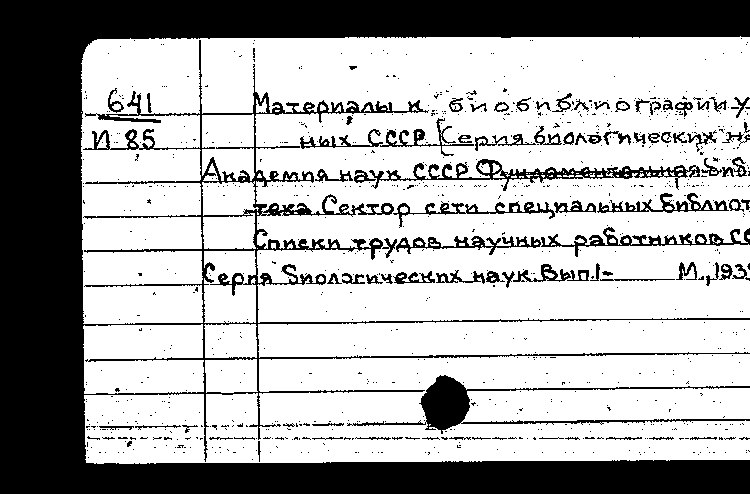 641
И 85
Материалы к биобиблиографии у
ных СССР [Серия биологических на
Академия наук СССР Фундаментальная библ
тека. Сектор сети специальных библиот
Списки трудов научных работников СС
Серия биологических наук. Вып.1- М., 1939